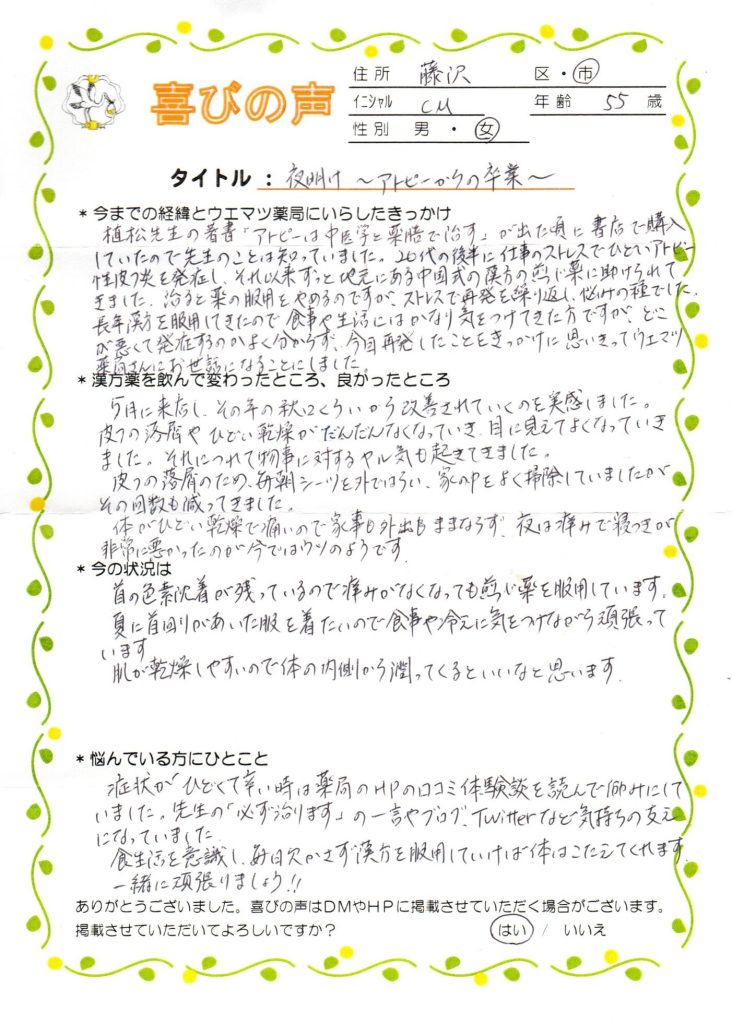 喜びの声
住所 藤沢 区・市
イニシャル CM 年齢 55 歳
性別 男・女
タイトル：夜明け 〜アトピーからの卒業〜
＊今までの経緯とウエマツ薬局にいらしたきっかけ
植松先生の著書「アトピーは中医学と薬膳で治す」が出た頃に書店で購入
していたので先生のことは知っていました。20代の後半に仕事のストレスでひどいアトピー
性皮フ炎を発症し、それ以来ずっと地元にある中国式の漢方の煎じ薬に助けられて
きました。治ると薬の服用をやめるのですが、ストレスで再発を繰り返し、悩みの種でした。
長年漢方を服用してきたので食事や生活にはかなり気をつけてきた方ですが、どこ
が悪くて発症するのかよく分からず、今回再発したことをきっかけに思いきってウエマツ
薬局さんにお世話になることにしました。
＊漢方薬を飲んで変わったところ、良かったところ
5月に来店し、その年の秋ごくらいから改善されていくのを実感しました。
皮フの落屑やひどい乾燥がだんだんなくなっていき、目に見えてよくなっていき
ました。それにつれて物事に対するヤル気も起きてきました。
皮フの落屑のため、毎朝シーツを外ではらい、家の中をよく掃除していましたが
その回数も減ってきました。
体がひどい乾燥で痛いので家事も外出もままならず、夜は痒みで寝つきが
非常に悪かったのが今ではウソのようです。
＊今の状況は
首の色素沈着が残っているので痒みがなくなっても煎じ薬を服用しています。
夏に首回りがあいた服を着たいので食事や冷えに気をつけながら頑張って
います
肌が乾燥しやすいので体の内側から潤ってくるといいなと思います.
＊悩んでいる方にひとこと
症状がひどくて辛い時は薬局のHPの口コミ体験談を読んで励みにして
いました。先生の「必ず治ります」の一言やブログ、Twitterなど気持ちの支え
になっていました.
食生活を意識し、毎日欠かさず漢方を服用していけば体はこたえてくれます.
一緒に頑張りましょう!!
ありがとうございました。喜びの声はDMやHPに掲載させていただく場合がございます。
掲載させていただいてよろしいですか？ はい / いいえ